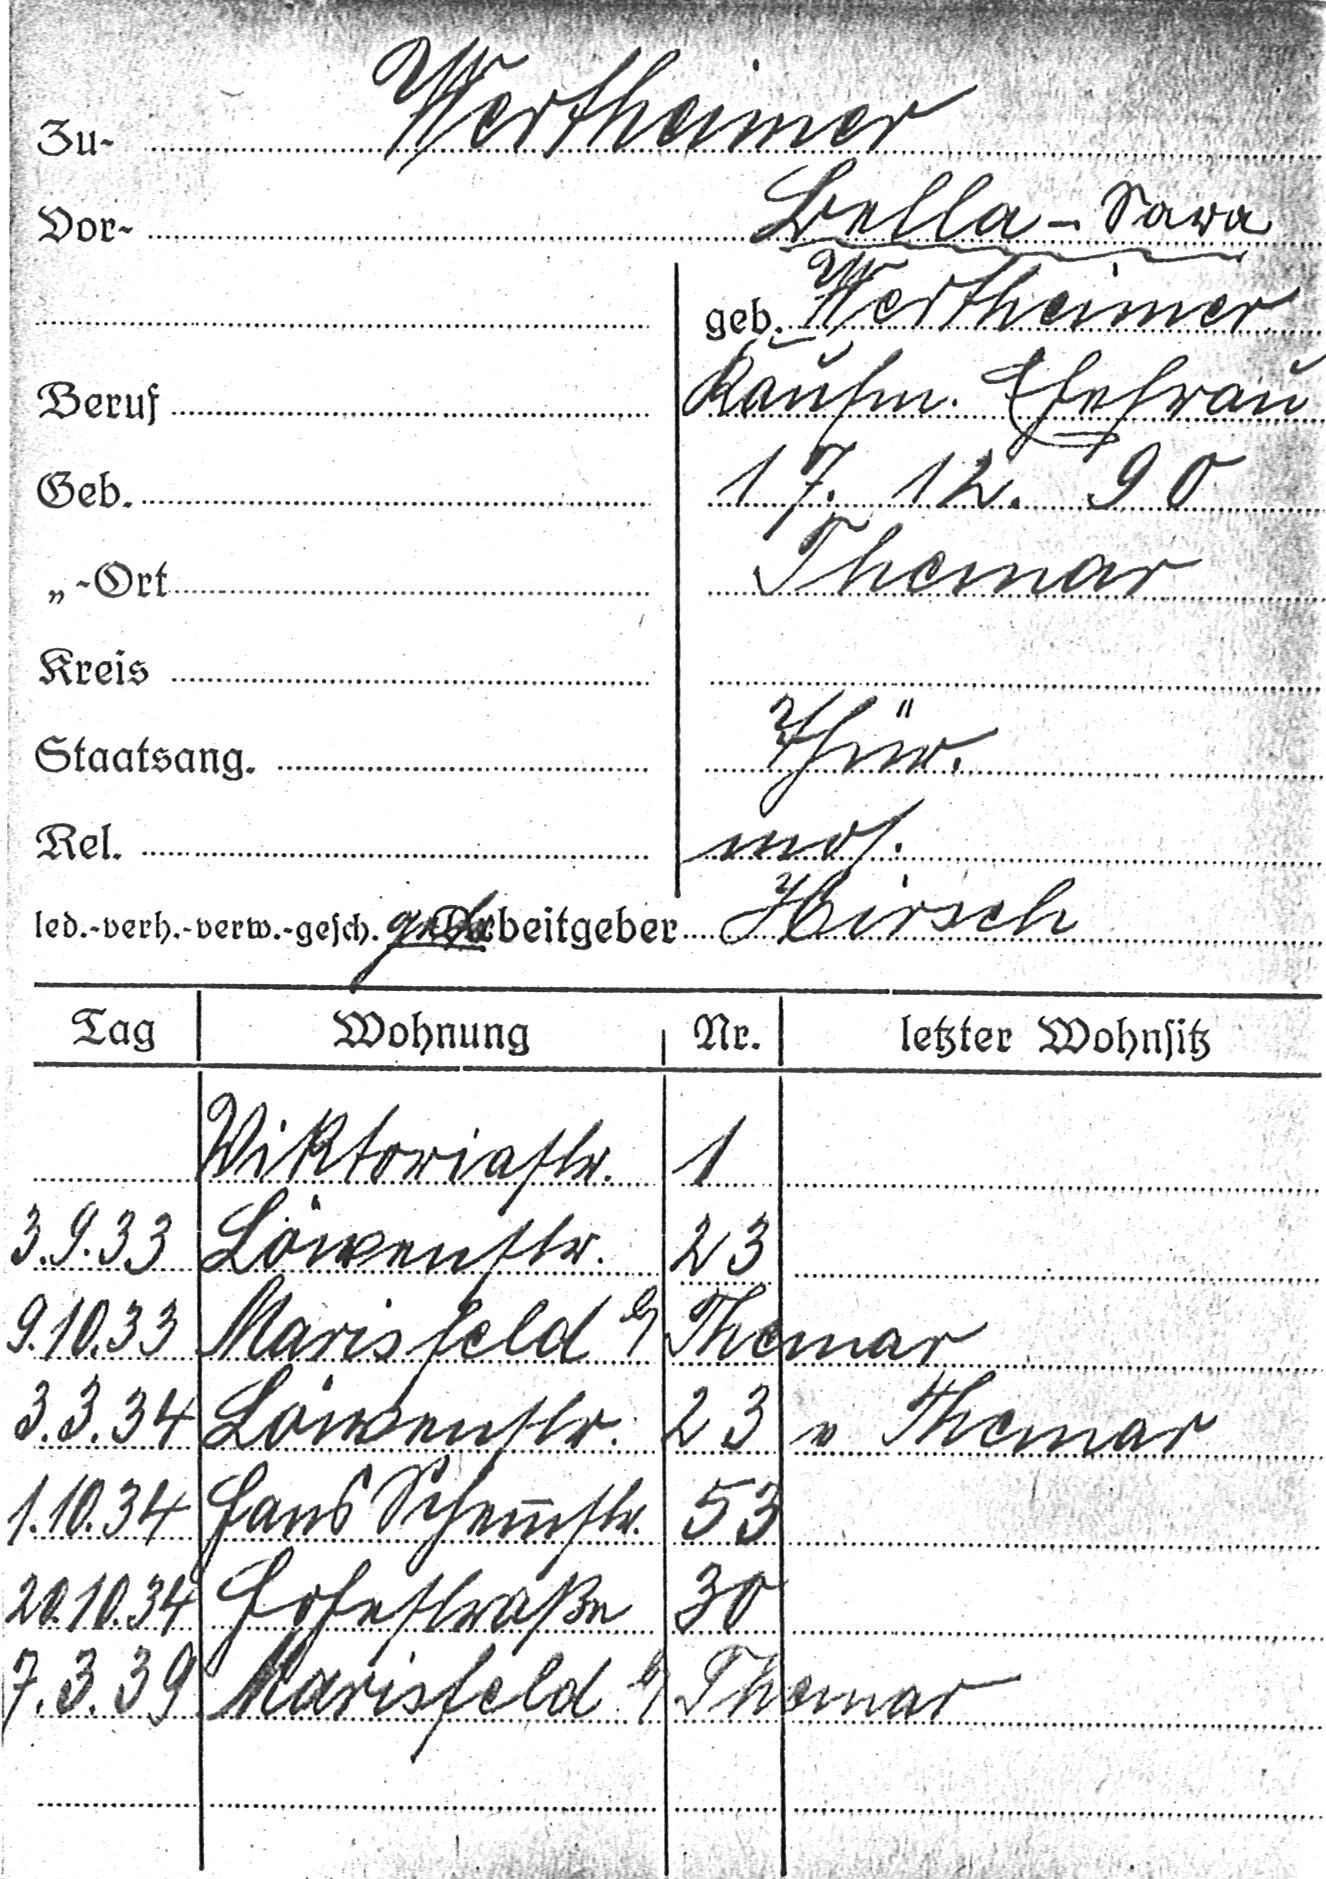 Zu- Wertheimer
Vor- Bella - Sara
geb. Wertheimer
Beruf Kaufm. Ehefrau
Geb. 17. 12. 90
„-Ort Themar
Kreis
Staatsang. Thür.
Rel. mos.
led.-verh.-verw.-gesch. Arbeitgeber Hirsch
Tag Wohnung Nr. letzter Wohnsitz
Viktoriastr. 1
3.9.33 Löwenstr. 23
9.10.33 Marisfeld b/ Themar
3.3.34 Löwenstr. 23 v Themar
1.10.34 Hans Schem̅str. 53
20.10.34 Hohestraße 30
7.3.39 Marisfeld b/ Themar